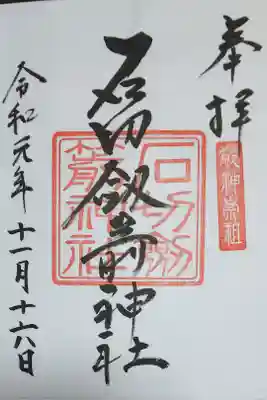 奉拝
敬神崇祖
石切劔箭神社
石切劔
箭神社
令和元年十一月十六日